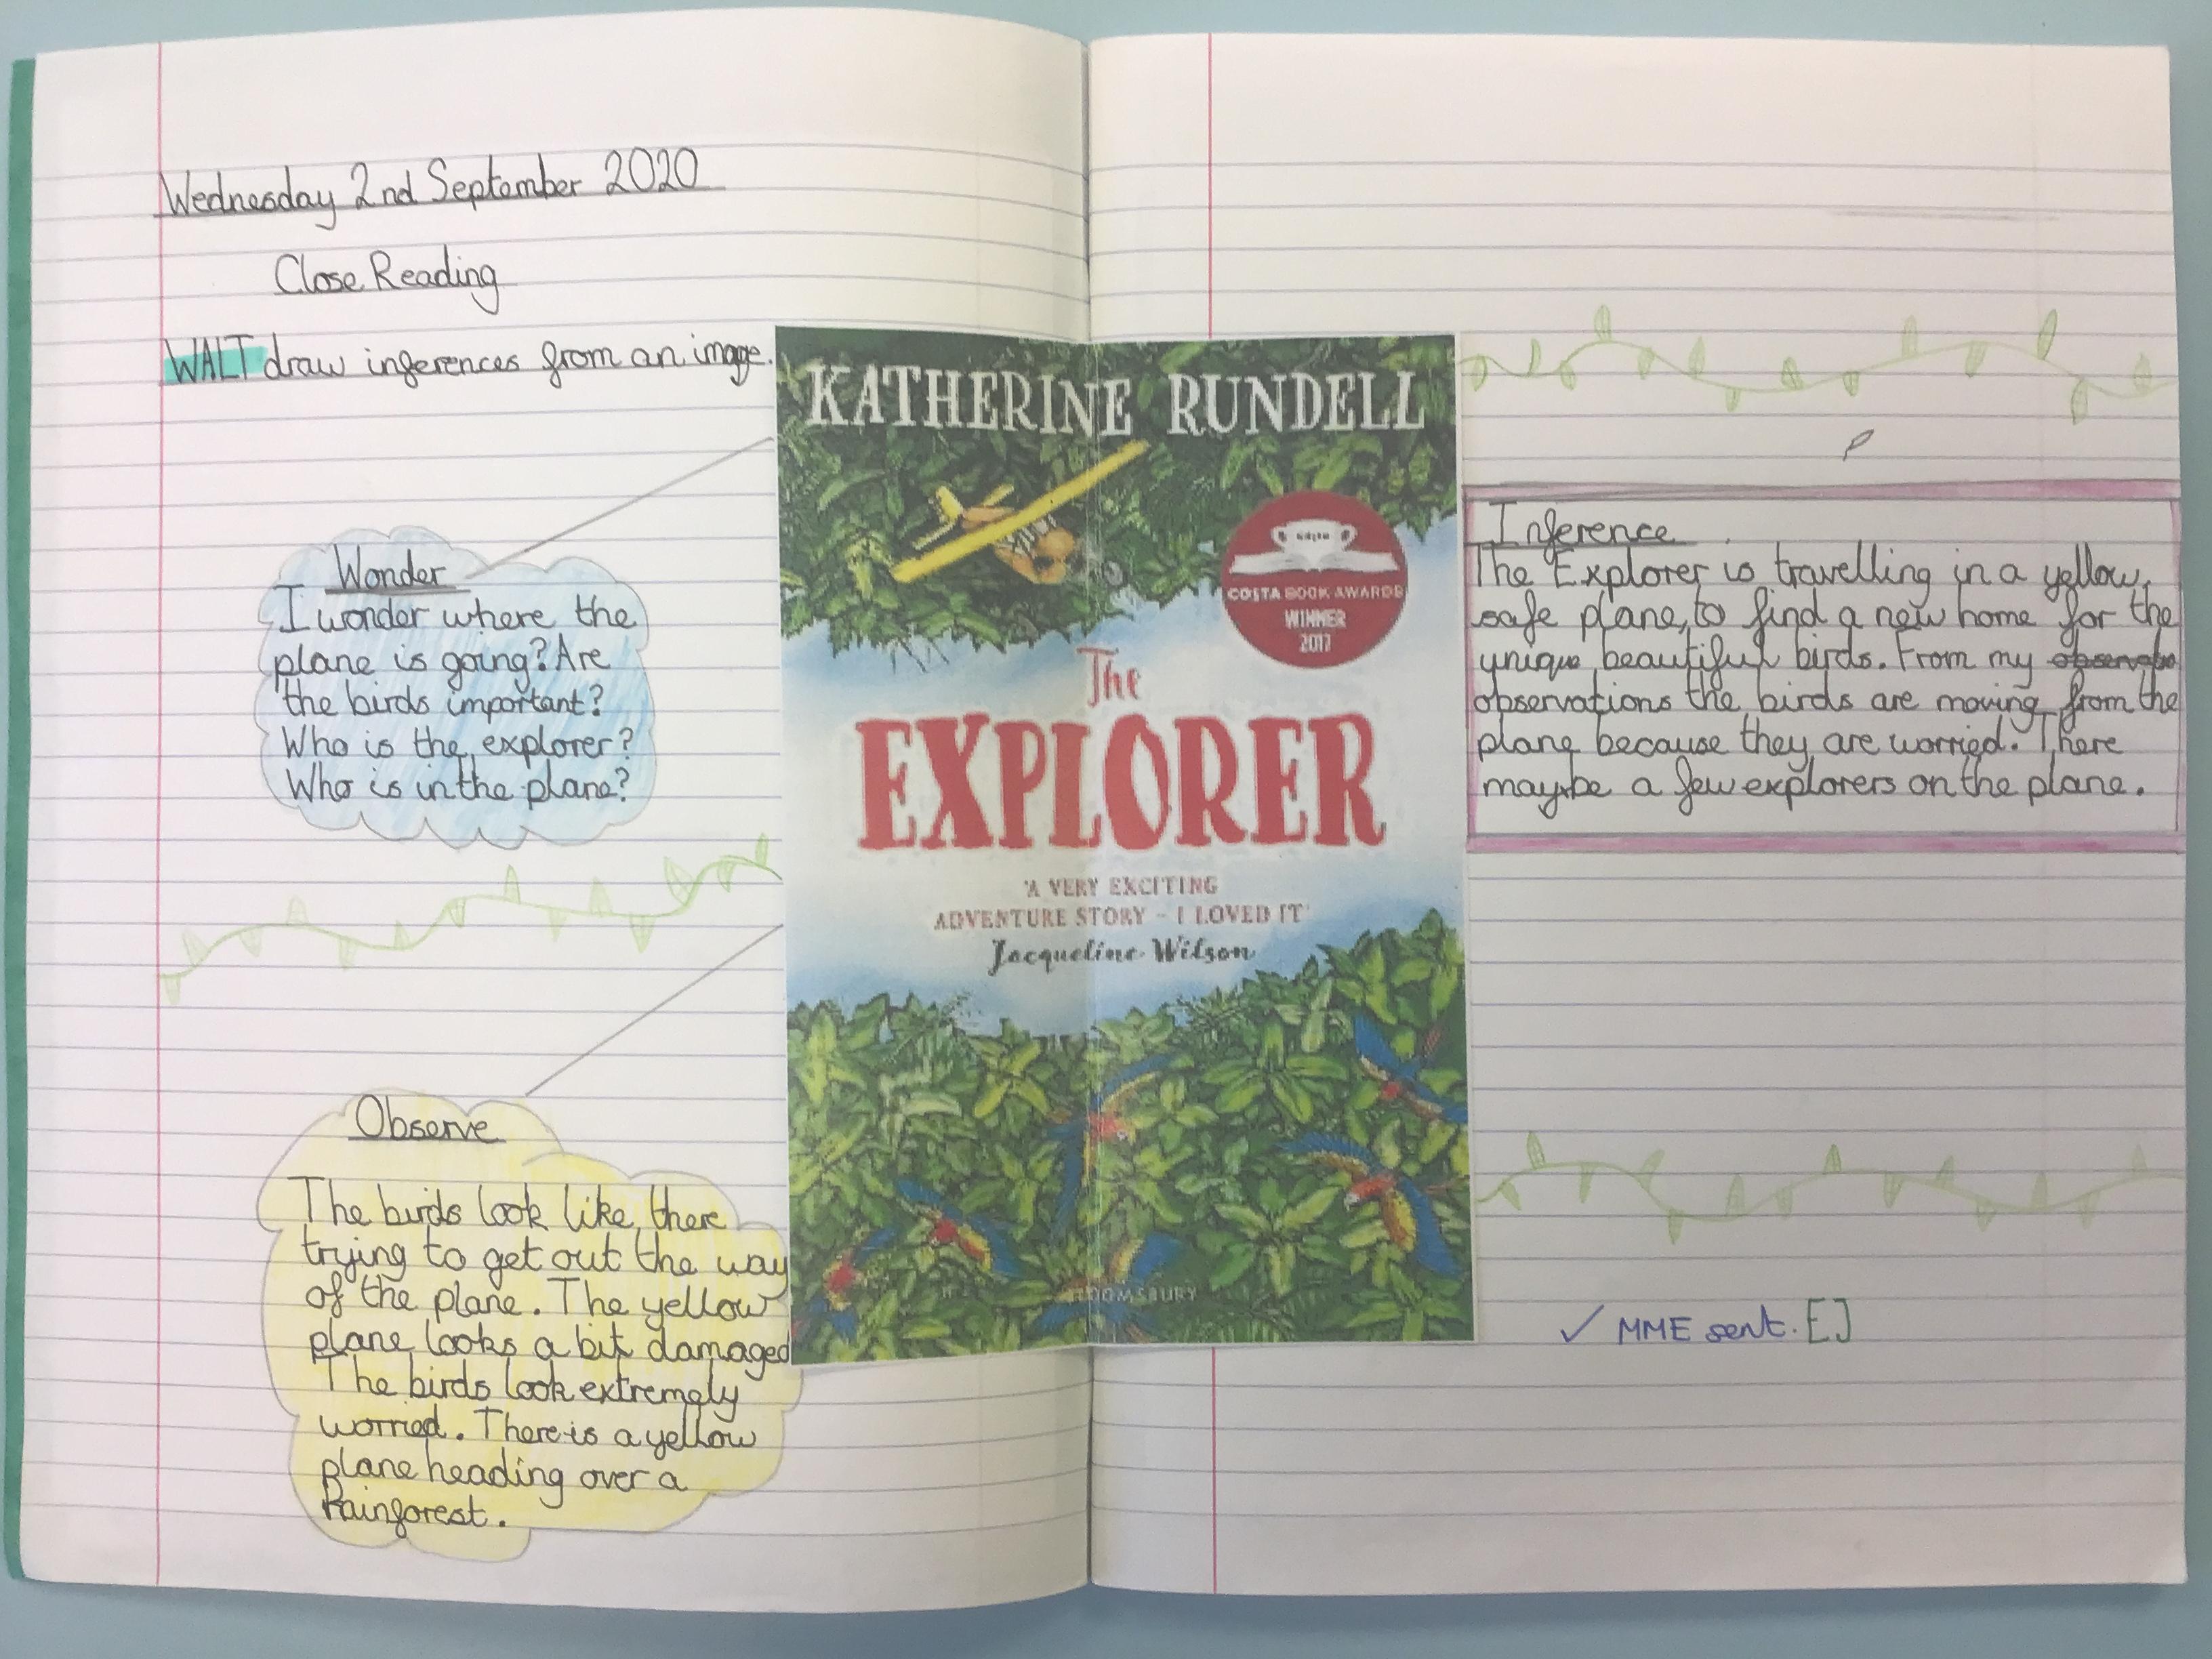 Wednesday 2nd September 2020
Close Reading
WALT draw inferences from an image.
Wonder
I wonder where the
plane is going? Are
the birds important?
Who is the explorer?
Who is in the plane?
Observe
The birds look like there
trying to get out the way
of the plane. The yellow
plane looks a bit damaged
The birds look extremely
worried. There is a yellow
plane heading over a
Rainforest.
KATHERINE RUNDELL
COSTA BOOK AWARDS
WINNER
2017
The
EXPLORER
'A VERY EXCITING
ADVENTURE STORY - I LOVED IT'
Jacqueline Wilson
BLOOMSBURY
Inference
The Explorer is travelling in a yellow,
safe plane, to find a new home for the
unique, beautiful birds. From my
observations the birds are moving from the
plane because they are worried. There
maybe a few explorers on the plane.
✓ MME sent. EJ